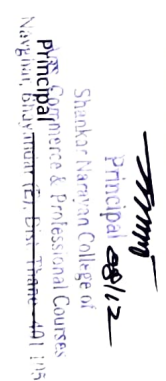 Principal
Shankar Narayan College of
Arts, Commerce & Professional Courses
Navghar, Bhayandar (E), Dist Thane - 401 105
Principal